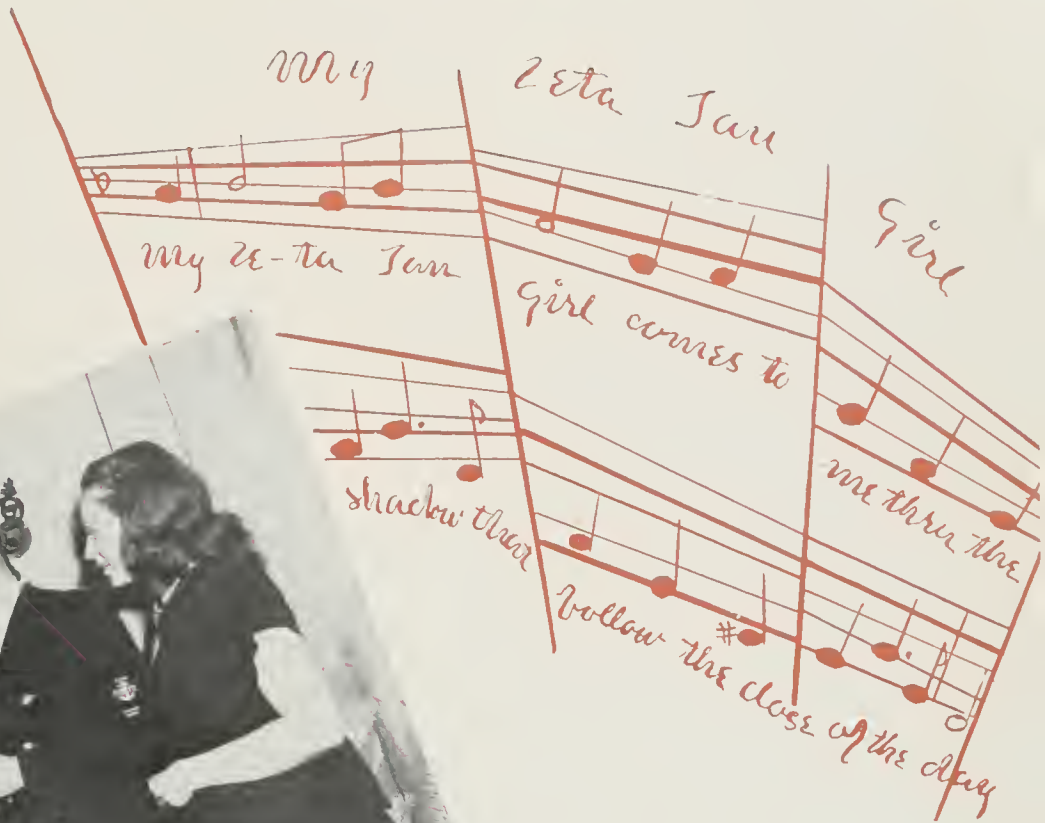 My Zeta Tau Girl
My Ze-ta Tau
Girl comes to
me thru the
shadow that
follow the close of the day